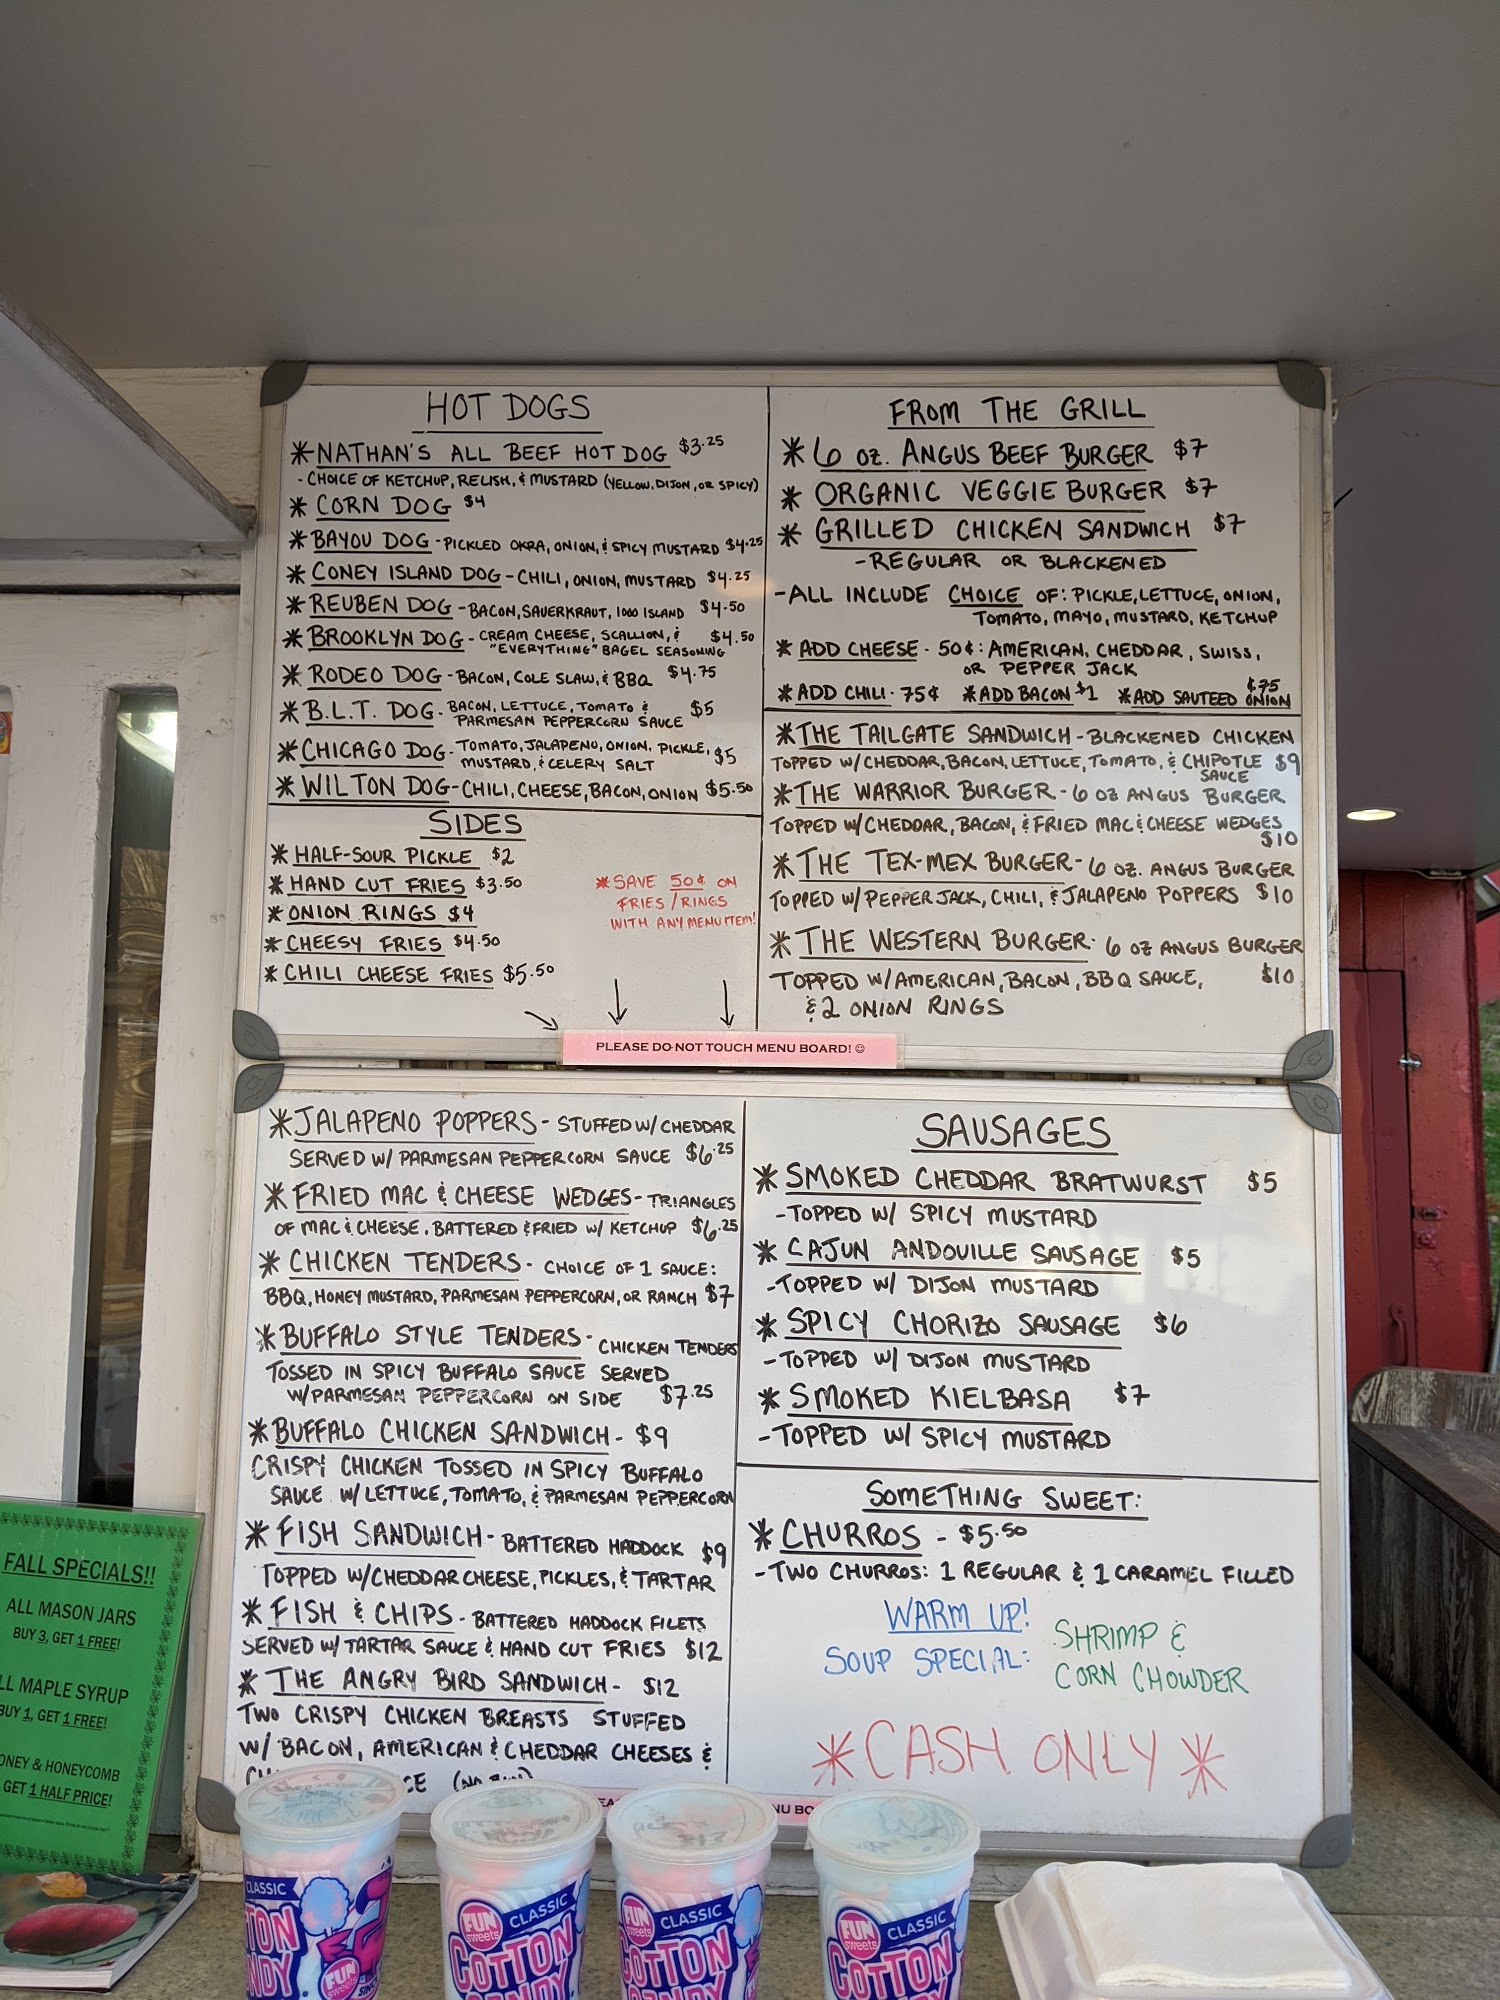 HOT DOGS
*NATHAN'S ALL BEEF HOT DOG $3.25
- CHOICE OF KETCHUP, RELISH, & MUSTARD (YELLOW, DIJON, OR SPICY)
* CORN DOG $4
* BAYOU DOG - PICKLED OKRA, ONION, & SPICY MUSTARD $4.25
* CONEY ISLAND DOG - CHILI, ONION, MUSTARD $4.25
* REUBEN DOG - BACON, SAUERKRAUT, 1000 ISLAND $4.50
* BROOKLYN DOG - CREAM CHEESE, SCALLION, & $4.50
"EVERYTHING" BAGEL SEASONING
* RODEO DOG - BACON, COLE SLAW, & BBQ $4.75
* B.L.T. DOG - BACON, LETTUCE, TOMATO & $5
PARMESAN PEPPERCORN SAUCE
* CHICAGO DOG - TOMATO, JALAPENO, ONION, PICKLE, $5
MUSTARD, & CELERY SALT
* WILTON DOG - CHILI, CHEESE, BACON, ONION $5.50
SIDES
* HALF-SOUR PICKLE $2
* HAND CUT FRIES $3.50
* ONION RINGS $4
* CHEESY FRIES $4.50
* CHILI CHEESE FRIES $5.50
* SAVE 50¢ ON
FRIES / RINGS
WITH ANY MENU ITEM!
FROM THE GRILL
* 6 OZ. ANGUS BEEF BURGER $7
* ORGANIC VEGGIE BURGER $7
* GRILLED CHICKEN SANDWICH $7
- REGULAR OR BLACKENED
- ALL INCLUDE CHOICE OF: PICKLE, LETTUCE, ONION,
TOMATO, MAYO, MUSTARD, KETCHUP
* ADD CHEESE - 50¢: AMERICAN, CHEDDAR, SWISS,
OR PEPPER JACK
* ADD CHILI - 75¢ * ADD BACON $1 * ADD SAUTEED ONION $.75
* THE TAILGATE SANDWICH - BLACKENED CHICKEN
TOPPED W/ CHEDDAR, BACON, LETTUCE, TOMATO, & CHIPOTLE $9
SAUCE
* THE WARRIOR BURGER - 6 OZ ANGUS BURGER
TOPPED W/ CHEDDAR, BACON, & FRIED MAC & CHEESE WEDGES
$10
* THE TEX-MEX BURGER - 6 OZ. ANGUS BURGER
TOPPED W/ PEPPER JACK, CHILI, & JALAPENO POPPERS $10
* THE WESTERN BURGER - 6 OZ ANGUS BURGER
TOPPED W/ AMERICAN, BACON, BBQ SAUCE, $10
& 2 ONION RINGS
PLEASE DO NOT TOUCH MENU BOARD! ☺
* JALAPENO POPPERS - STUFFED W/ CHEDDAR
SERVED W/ PARMESAN PEPPERCORN SAUCE $6.25
* FRIED MAC & CHEESE WEDGES - TRIANGLES
OF MAC & CHEESE, BATTERED & FRIED W/ KETCHUP $6.25
* CHICKEN TENDERS - CHOICE OF 1 SAUCE:
BBQ, HONEY MUSTARD, PARMESAN PEPPERCORN, OR RANCH $7
* BUFFALO STYLE TENDERS - CHICKEN TENDERS
TOSSED IN SPICY BUFFALO SAUCE SERVED
W/ PARMESAN PEPPERCORN ON SIDE $7.25
* BUFFALO CHICKEN SANDWICH - $9
CRISPY CHICKEN TOSSED IN SPICY BUFFALO
SAUCE W/ LETTUCE, TOMATO, & PARMESAN PEPPERCORN
* FISH SANDWICH - BATTERED HADDOCK $9
TOPPED W/ CHEDDAR CHEESE, PICKLES, & TARTAR
* FISH & CHIPS - BATTERED HADDOCK FILETS
SERVED W/ TARTAR SAUCE & HAND CUT FRIES $12
* THE ANGRY BIRD SANDWICH - $12
TWO CRISPY CHICKEN BREASTS STUFFED
W/ BACON, AMERICAN & CHEDDAR CHEESES &
SAUSAGES
* SMOKED CHEDDAR BRATWURST $5
- TOPPED W/ SPICY MUSTARD
* CAJUN ANDOUILLE SAUSAGE $5
- TOPPED W/ DIJON MUSTARD
* SPICY CHORIZO SAUSAGE $6
- TOPPED W/ DIJON MUSTARD
* SMOKED KIELBASA $7
- TOPPED W/ SPICY MUSTARD
SOMETHING SWEET:
* CHURROS - $5.50
- TWO CHURROS: 1 REGULAR & 1 CARAMEL FILLED
WARM UP!
SOUP SPECIAL: SHRIMP &
CORN CHOWDER
* CASH ONLY *
FALL SPECIALS!!
ALL MASON JARS
BUY 3, GET 1 FREE!
MAPLE SYRUP
BUY 1, GET 1 FREE!
& HONEYCOMB
GET 1 HALF PRICE!
CLASSIC
FUN sweets
FUN sweets CLASSIC
COTTON
FUN sweets CLASSIC
COTTON
FUN sweets CLASSIC
COTTON